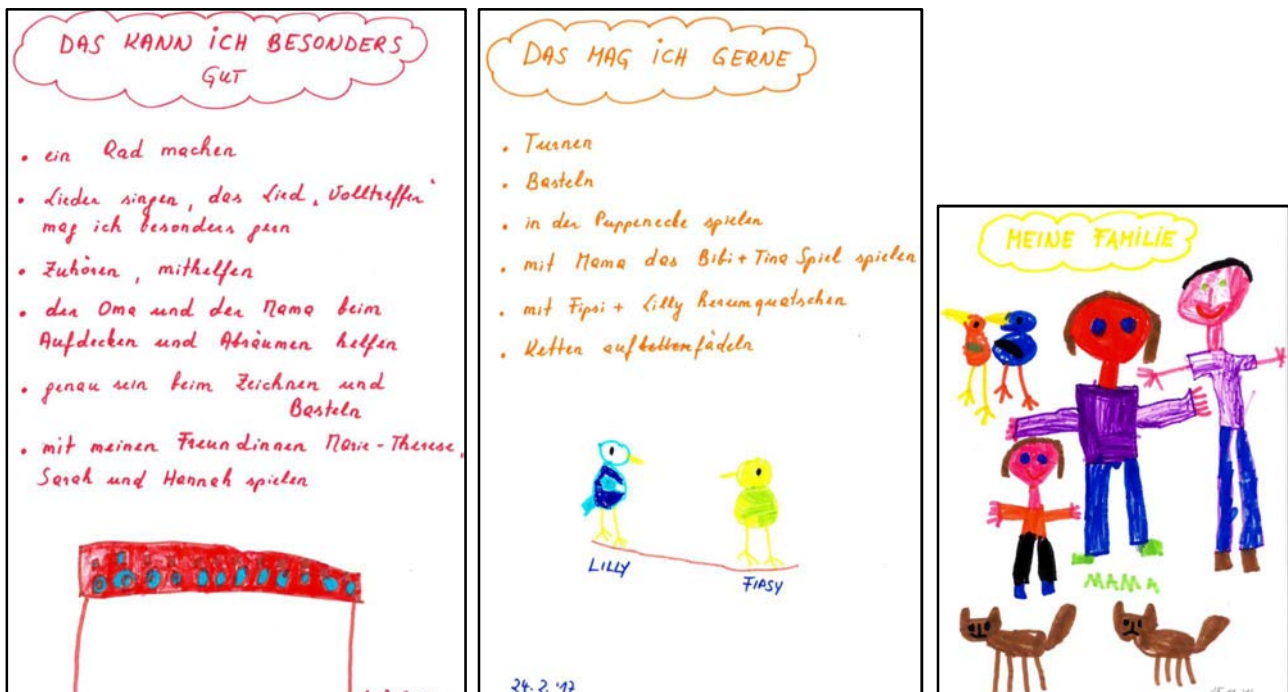 DAS KANN iCH BESONDERS
GUT
• ein Rad machen
• Lieder singen, das Lied „Volltreffer“
mag ich besonders gern
• Zuhören, mithelfen
• der Oma und der Mama beim
Aufdecken und Abräumen helfen
• genau sein beim Zeichnen und
Basteln
• mit meinen Freundinnen Marie-Therese,
Sarah und Hannah spielen
DAS MAG iCH GERNE
• Turnen
• Basteln
• in der Puppenecke spielen
• mit Mama das Bibi + Tina Spiel spielen
• mit Fipsi + Lilly herumquatschen
• Ketten auffädeln
LILLY
FIPSY
24. 2. '17
MEINE FAMILIE
MAMA